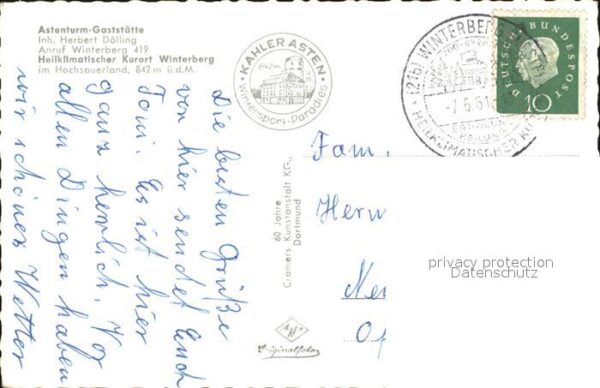 Astenturm-Gaststätte
Inh. Herbert Dölling
Anruf Winterberg 419
Heilklimatischer Kurort Winterberg
im Hochsauerland, 842 m ü.d.M.
KAHLER ASTEN
842m
Wintersport-Paradies
(21b) WINTERBERG
-7.6.61
HEILKLIMATISCHER KURORT
DEUTSCHE BUNDESPOST
10
Die besten Grüße
von hier sendet Euch
Toni. Es ist hier
ganz herrlich. Vor
allen Dingen haben
wir schönes Wetter
60 Jahre
Cramers Kunstanstalt KG.,
Dortmund
Originalfoto
Fam.
Herrn
privacy protection
Datenschutz